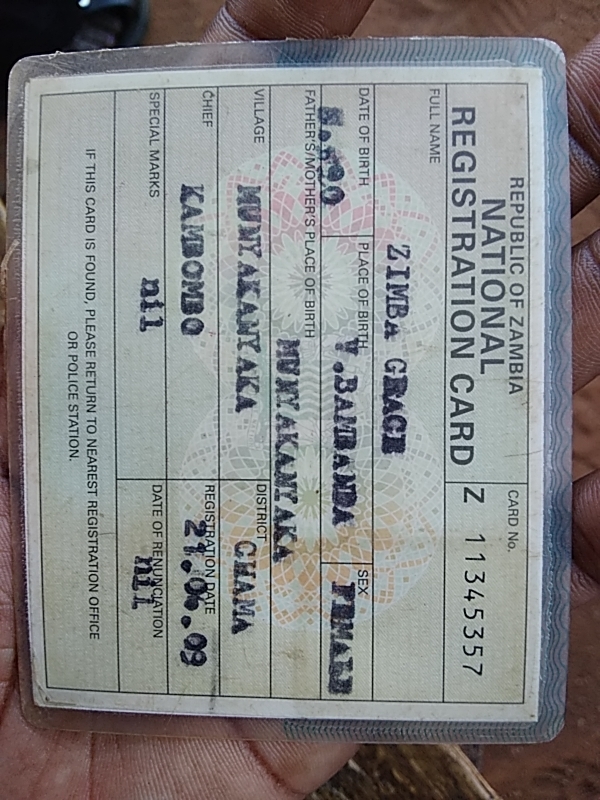 REPUBLIC OF ZAMBIA
NATIONAL
REGISTRATION CARD
CARD No.
Z 11345357
FULL NAME
ZIMBA GRACE
DATE OF BIRTH
PLACE OF BIRTH
V.BAMBANDA
SEX
FEMALE
FATHER'S/MOTHER'S PLACE OF BIRTH
MUNYAKANYAKA
VILLAGE
MUNYAKANYAKA
DISTRICT
CHAMA
CHIEF
KAMBOMBO
REGISTRATION DATE
SPECIAL MARKS
nil
DATE OF RENUNCIATION
nil
IF THIS CARD IS FOUND, PLEASE RETURN TO NEAREST REGISTRATION OFFICE
OR POLICE STATION.